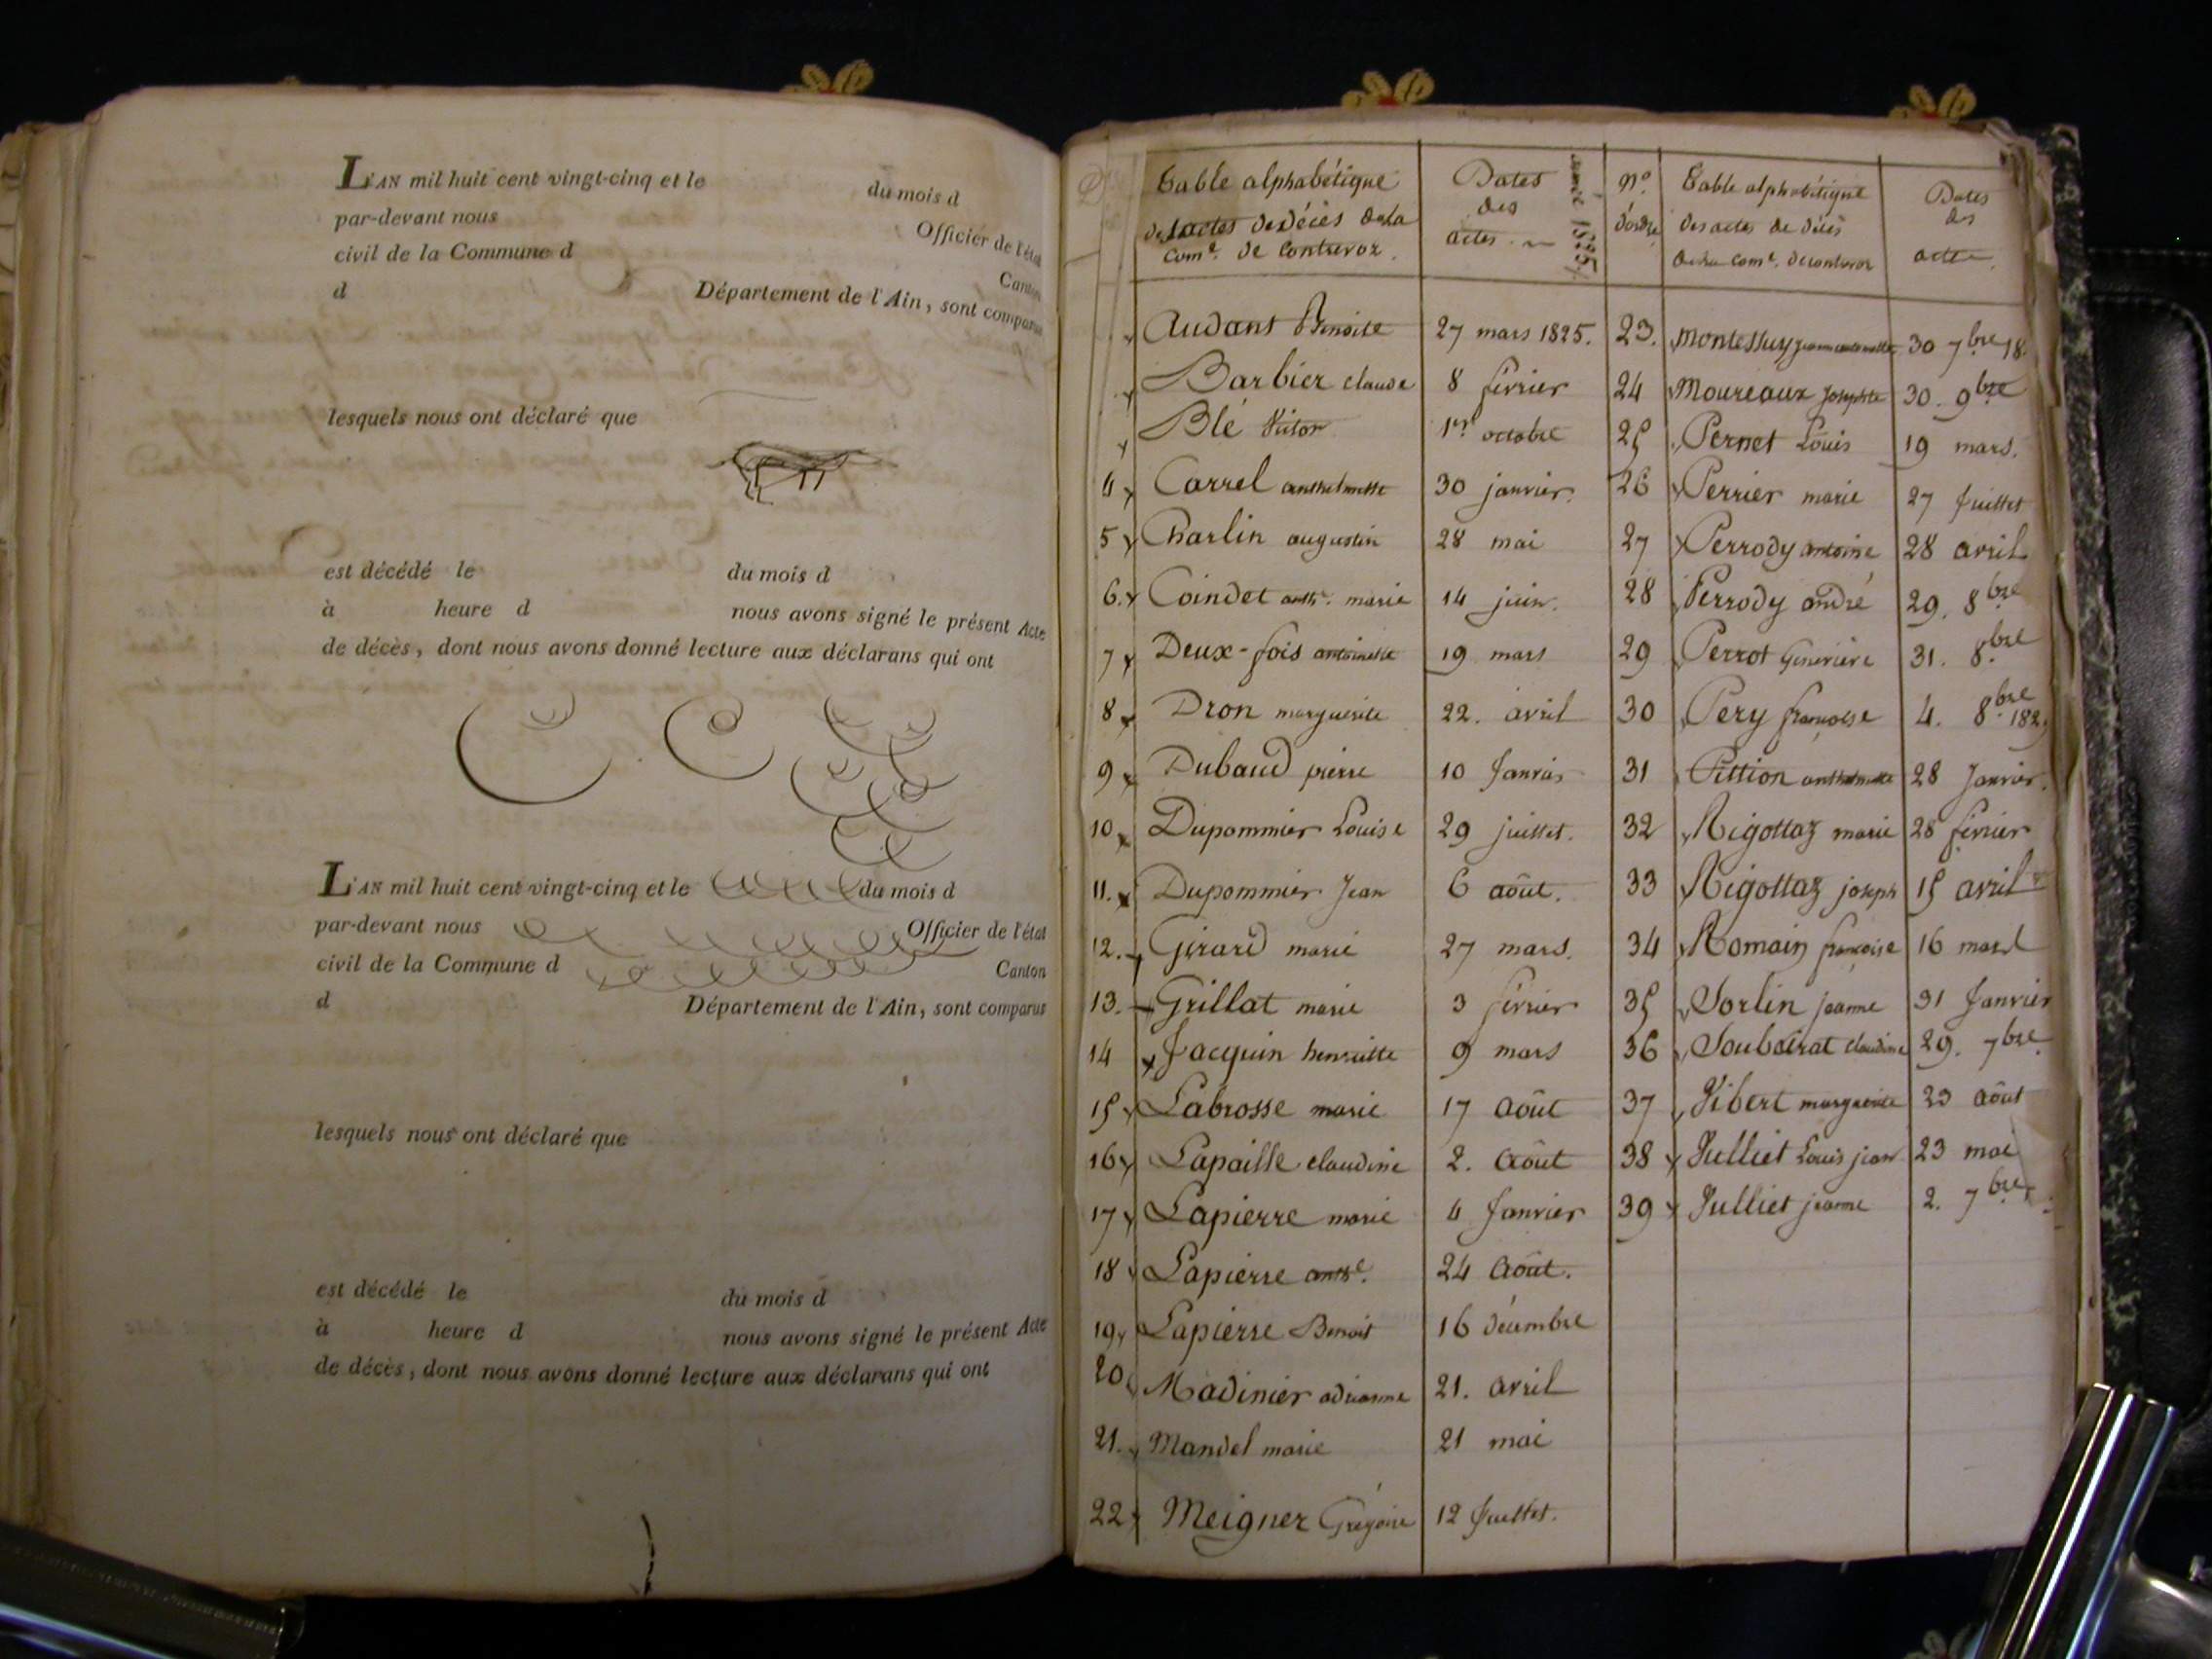 L'AN mil huit cent vingt-cinq et le du mois d
par-devant nous Officier de l'état
civil de la Commune d Canton
d Département de l'Ain, sont comparus
lesquels nous ont déclaré que
est décédé le du mois d
à heure d nous avons signé le présent Acte
de décès, dont nous avons donné lecture aux déclarans qui ont
L'AN mil huit cent vingt-cinq et le du mois d
par-devant nous Officier de l'état
civil de la Commune d Canton
d Département de l'Ain, sont comparus
lesquels nous ont déclaré que
est décédé le du mois d
à heure d nous avons signé le présent Acte
de décès, dont nous avons donné lecture aux déclarans qui ont
Table alphabétique
des actes de décès de la
com.e de contrevoz.
Dates
des
actes.
année 1825
n.o
d'ordre
Table alphabétique
des actes de décès
de la com.e de contrevoz
Dates
des
actes.
Audant Benoite 27 mars 1825.
Barbier claude 8 février
Blé Victor 1.er octobre
4 Carrel anthelmette 30 janvier.
5 Charlin augustin 28 mai
6. Coindet anth.e marie 14 juin.
7 Deux-fois antoinette 19 mars
8 Dron marguerite 22. avril
9 Dubaud pierre 10 Janvier
10 Dupommier Louise 29 juillet.
11. Dupommier Jean 6 août.
12. Girard marie 27 mars.
13. Grillat marie 3 février
14 Jacquin henriette 9 mars
15 Labrosse marie 17 août
16 Lapaille claudine 2. août
17 Lapierre marie 4 Janvier
18 Lapierre anth.e 24 août.
19 Lapierre Benoit 16 décembre
20 Madinier adrianne 21. avril
21. Mandel marie 21 mai
22 Meigner Grégoire 12 Juillet.
23. Montessuy 30 7bre 18
24 Moureaux Josephte 30. 9bre
25 Pernet Louis 19 mars.
26 Perrier marie 27 Juillet
27 Perrody antoine 28 avril
28 Perrody andré 29. 8bre
29 Perrot Genevieve 31. 8bre
30 Pery françoise 4. 8bre 182
31 Pittion anthelmette 28 Janvier.
32 Rigottaz marie 28 février
33 Rigottaz joseph 15 avril
34 Romain françoise 16 mars
35 Sorlin jeanne 31 Janvier
36 Soubeirat claudine 29. 7bre
37 Vibert marguerite 23 août
38 Vulliet Louis jean 23 mai
39 Vulliet jeanne 2. 7bre